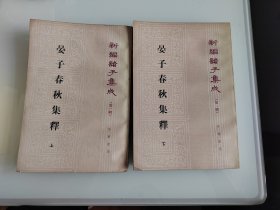 新編諸子集成
（第一輯）
晏子春秋集釋
上
新編諸子集成
（第一輯）
晏子春秋集釋
下